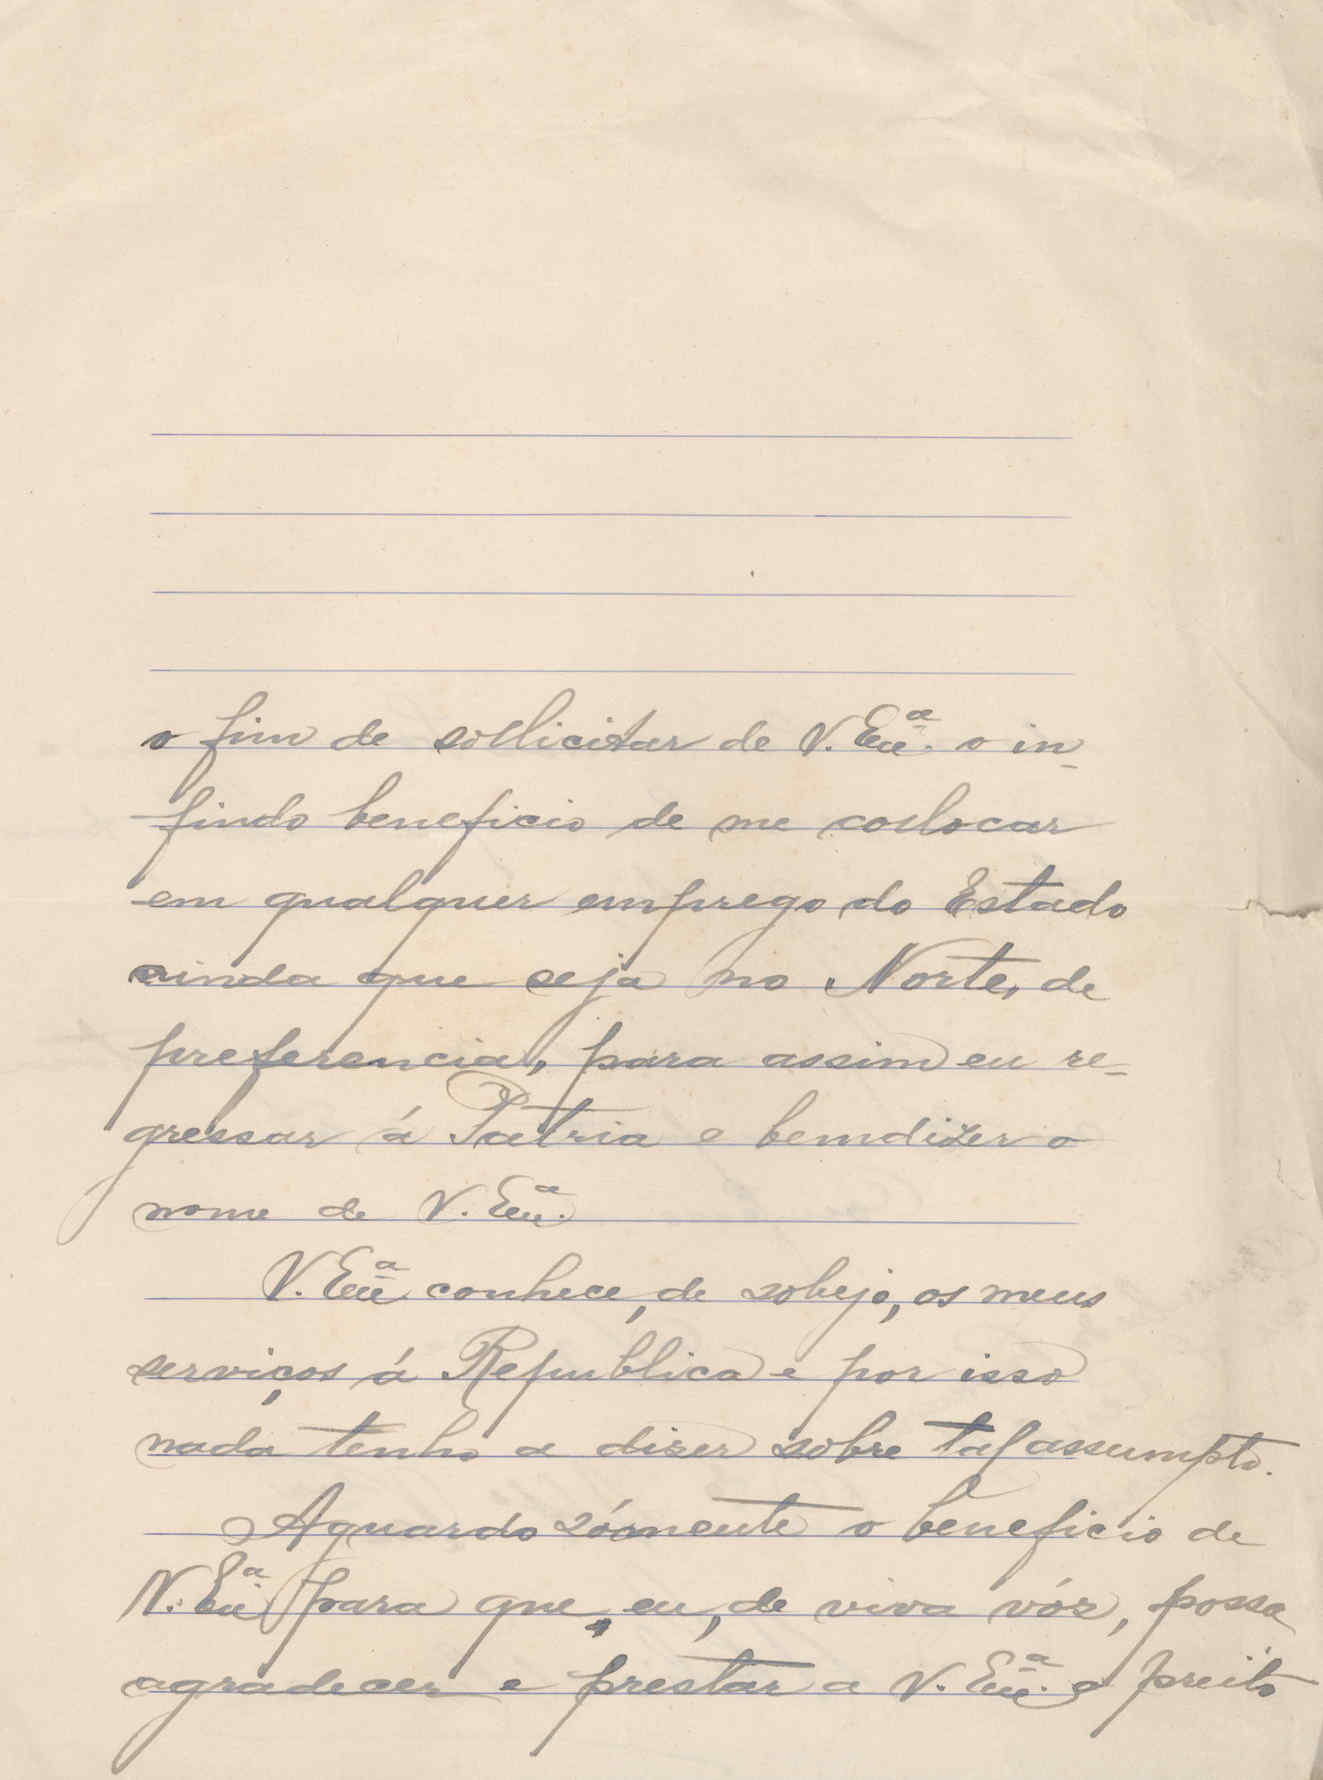 o fim de sollicitar de V. Exª. o in-
findo beneficio de me collocar
em qualquer emprego do Estado
ainda que seja no Norte, de
preferencia, para assim eu re-
gressar á Patria e bemdizer o
nome de V. Exª.
V. Exª conhece, de sobejo, os meus
serviços á Republica e por isso
nada tenho a dizer sobre tal assumpto.
Aguardo sómente o beneficio de
V. Exª para que, eu, de viva vóz, possa
agradecer e prestar a V. Exª. o preito